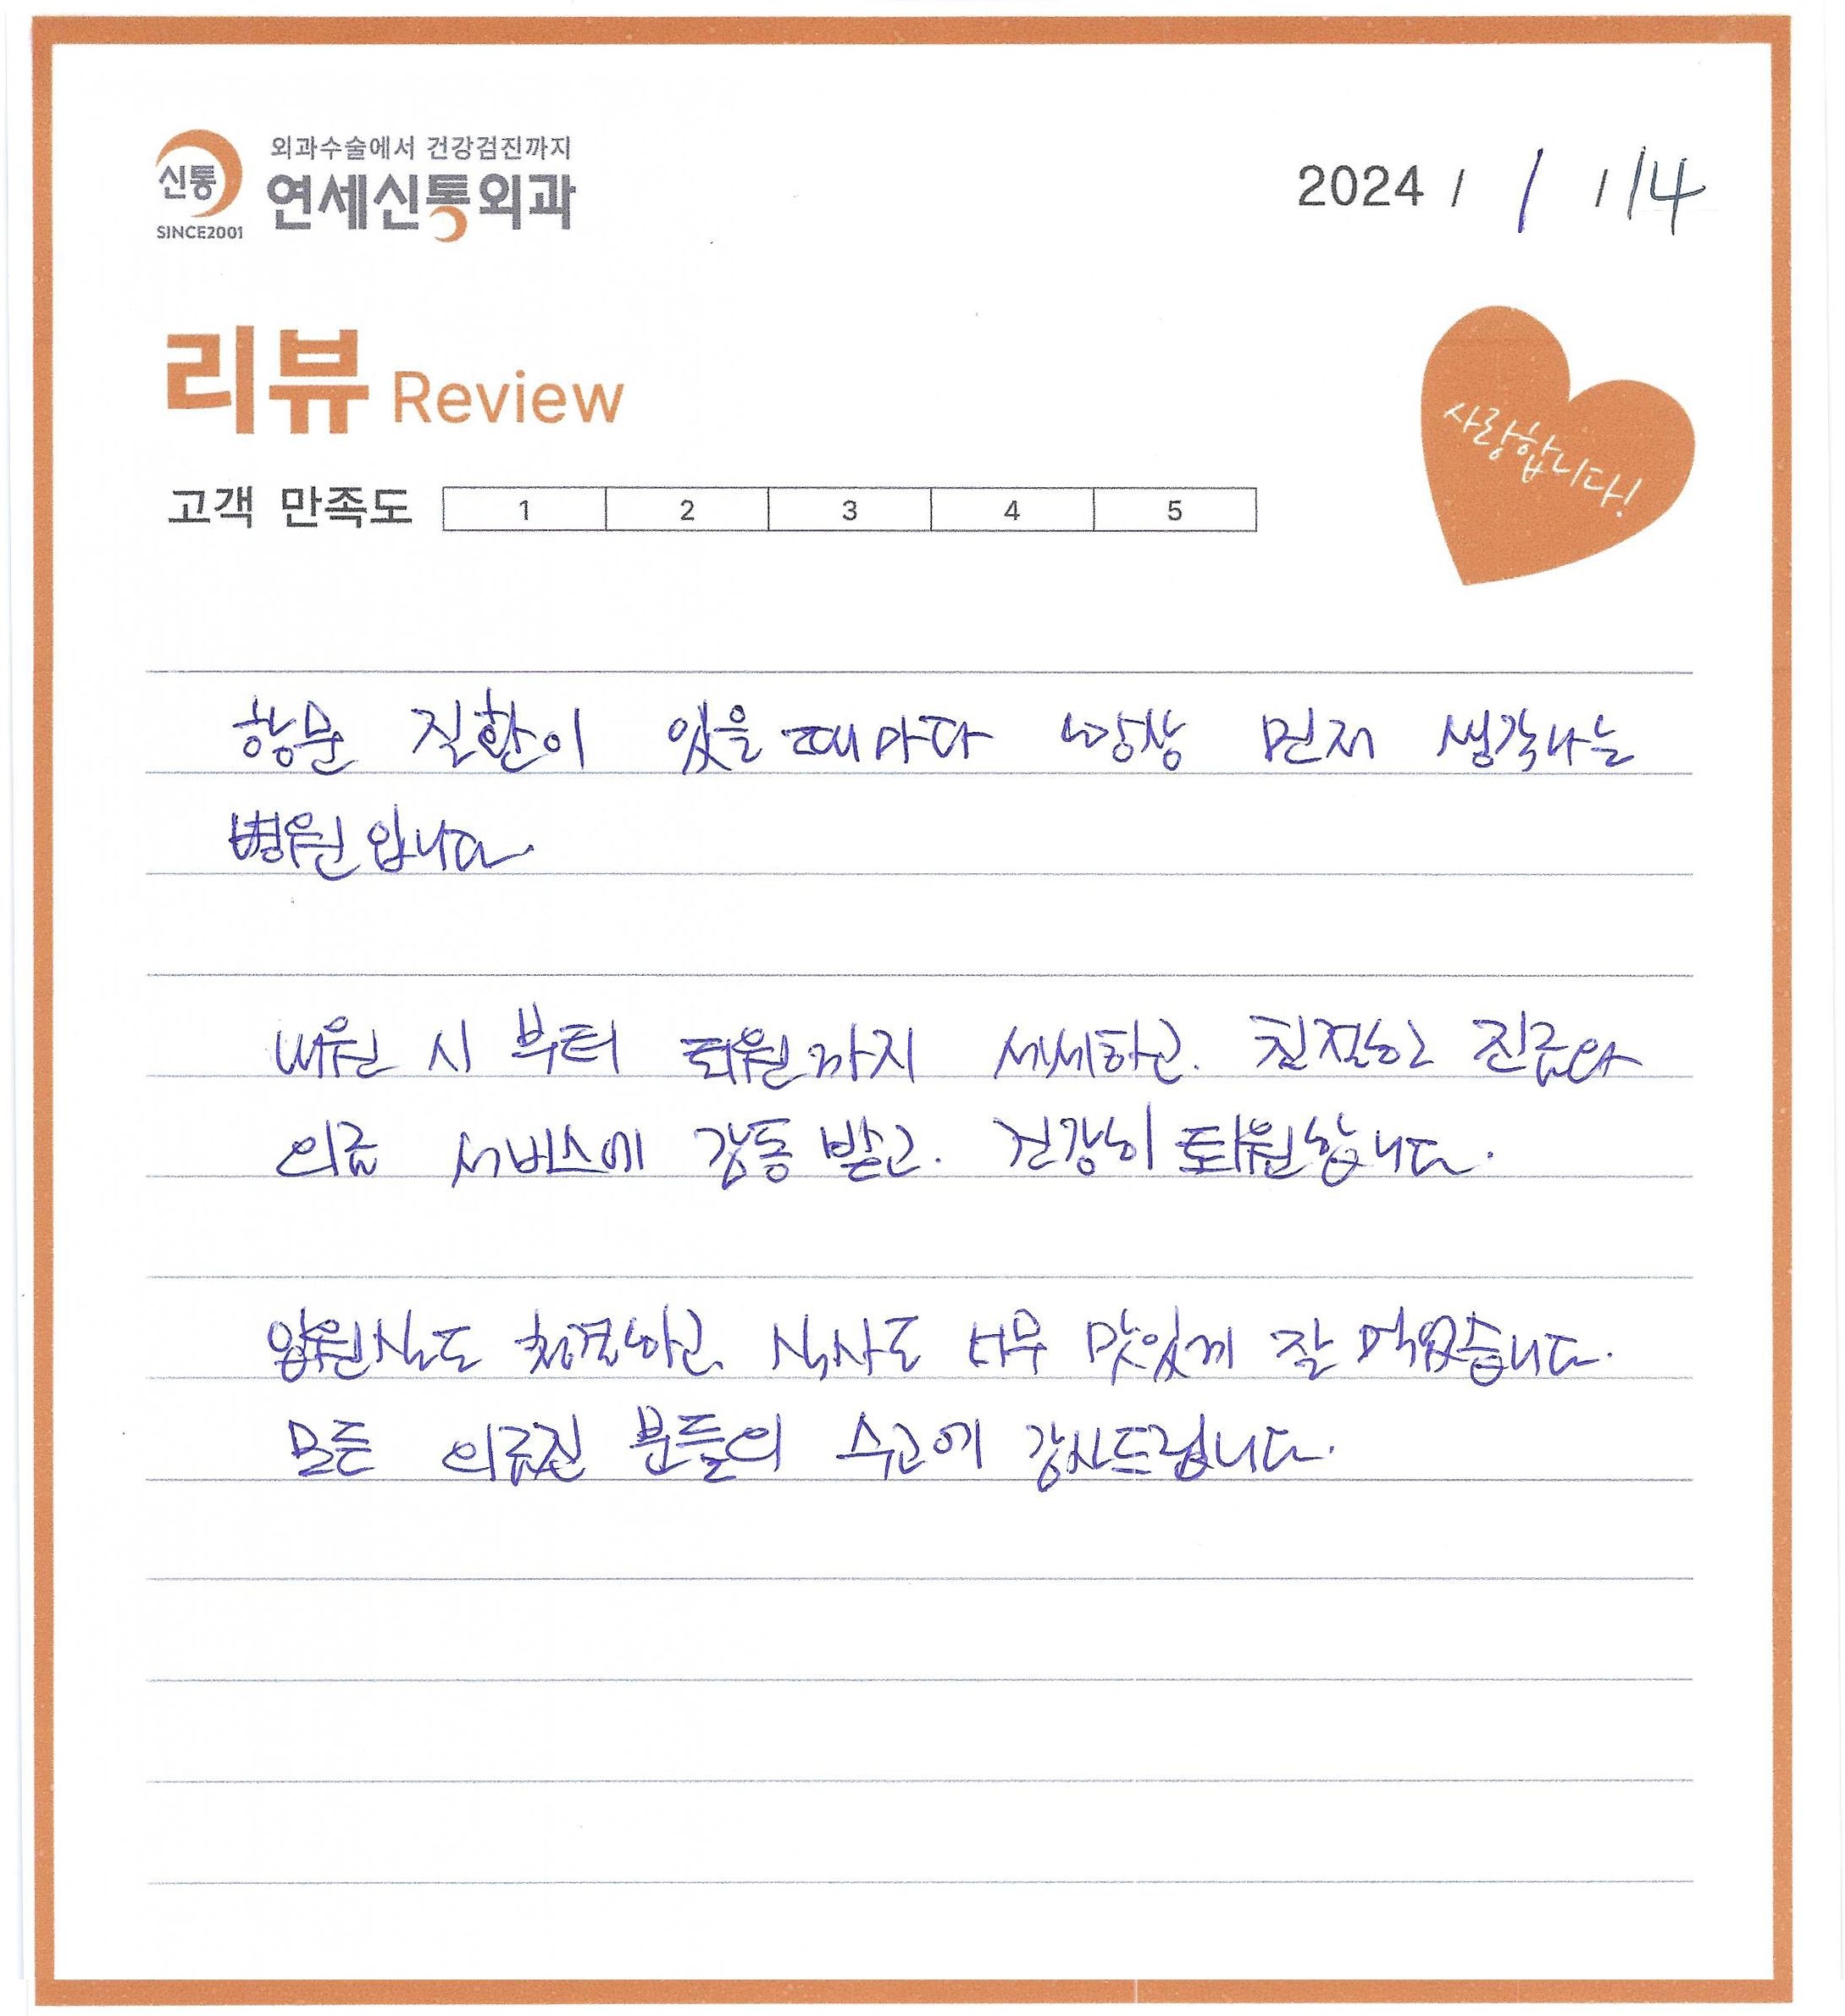 신통
SINCE2001
외과수술에서 건강검진까지
연세신통외과
2024 / 1 / 14
리뷰 Review
고객 만족도 1 2 3 4 5
사랑합니다!
항문 질환이 있을때마다 항상 먼저 생각나는
병원입니다.
내원 시 부터 퇴원까지 세세하고. 친절한 진료와
의료 서비스에 감동 받고. 건강히 퇴원합니다.
입원실도 청결하고. 식사도 너무 맛있게 잘 먹었습니다.
모든 의료진 분들의 수고에 감사드립니다.